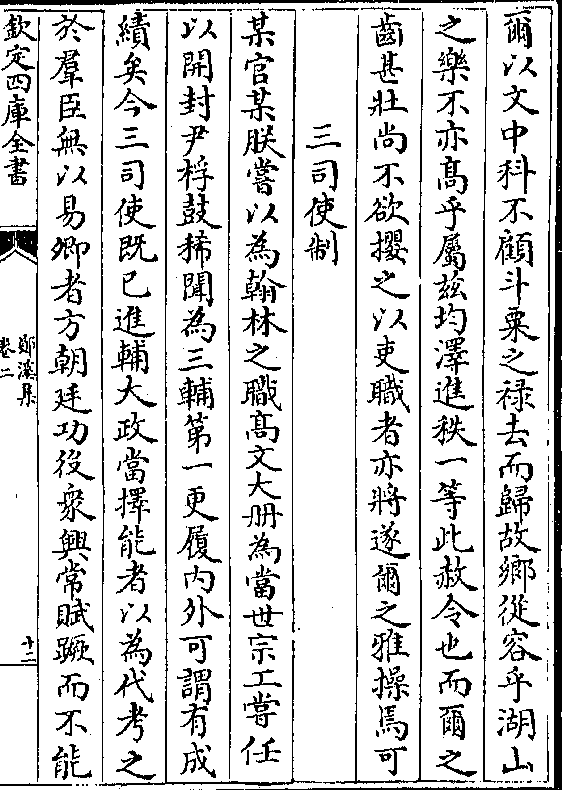 爾以文中科不顧斗粟之禄去而歸故鄉從容乎湖山
之樂不亦髙乎屬兹均澤進秩一等此赦令也而爾之
齒甚壯尚不欲攖之以吏職者亦將遂爾之雅操焉可
三司使制
某官某朕嘗以為翰林之職髙文大册為當世宗工嘗任
以開封尹桴鼓稀聞為三輔第一更履内外可謂有成
績矣今三司使既已進輔大政當擇能者以為代考之
於羣臣無以易卿者方朝廷功役衆興常賦蹶而不能
欽定四庫全書
鄖溪集
卷二
十二